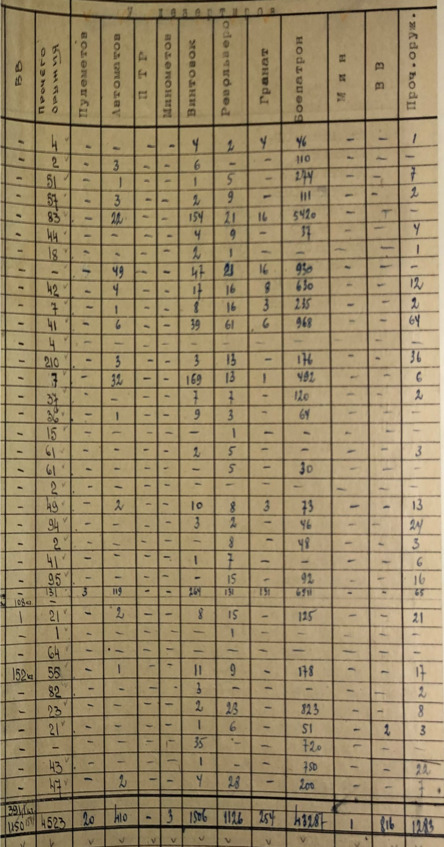 У
В В
Прочего оружия
Пулеметов
Автоматов
П Т Р
Минометов
Винтовок
Револьверо
Гранат
Боепатрон
М и н
В В
Проч.оруж.
- 4 - - - - 4 2 4 46 - - 1
- 2 - 3 - - 6 - - 110 - - -
- 51 - 1 - - 1 5 - 274 - - 7
- 57 - 3 - - 2 9 - 111 - - 2
- 83 - 22 - - 154 21 16 5420 - - -
- 44 - - - - 4 9 - 37 - - 4
- 18 - - - - 2 1 - - - - 1
- - - 49 - - 47 16 930 - - -
- 42 - 4 - - 17 16 8 630 - - 12
- 7 - 1 - - 8 16 3 235 - - 2
- 41 - 6 - - 39 61 6 968 - - 64
- 4 - - - - - - - - - - -
- 210 - 3 - - 3 13 - 176 - - 36
- 7 - 32 - - 169 13 1 492 - - 6
- 37 - - - - 7 7 - 120 - - 2
- - 1 - - 9 3 - 64 - - -
- 15 - - - - - 1 - - - - -
- 61 - - - - 2 5 - - - - 3
- 61 - - - - - 5 - 30 - - -
- 2 - - - - - - - - - - -
- 49 - 2 - - 10 8 3 73 - - 13
- 94 - - - - 3 2 - 46 - - 24
- 2 - - - - - 8 - 48 - - 3
- 41 - - - - 1 7 - - - - 6
- 95 - - - - - 15 - 92 - - 16
131 3 119 - - 264 131 131 - - 65
1 21 - 2 - - 8 15 - 125 - - 21
- 1 - - - - - 1 - - - - -
- 64 - - - - - - - - - - -
152кг 55 - 1 - - 11 9 - 178 - - 17
- 82 - - - - 3 - - - - - 2
- 23 - - - - 2 23 - 823 - - 8
- 21 - - - - 1 6 - 51 - 2 3
- - - - - - 35 - - 720 - - -
- 43 - - - - 1 - - 750 - - 22
- 47 - 2 - - 4 28 - 200 - - 7
4523 20 410 - 3 1506 1126 254 43287 1 816 1283